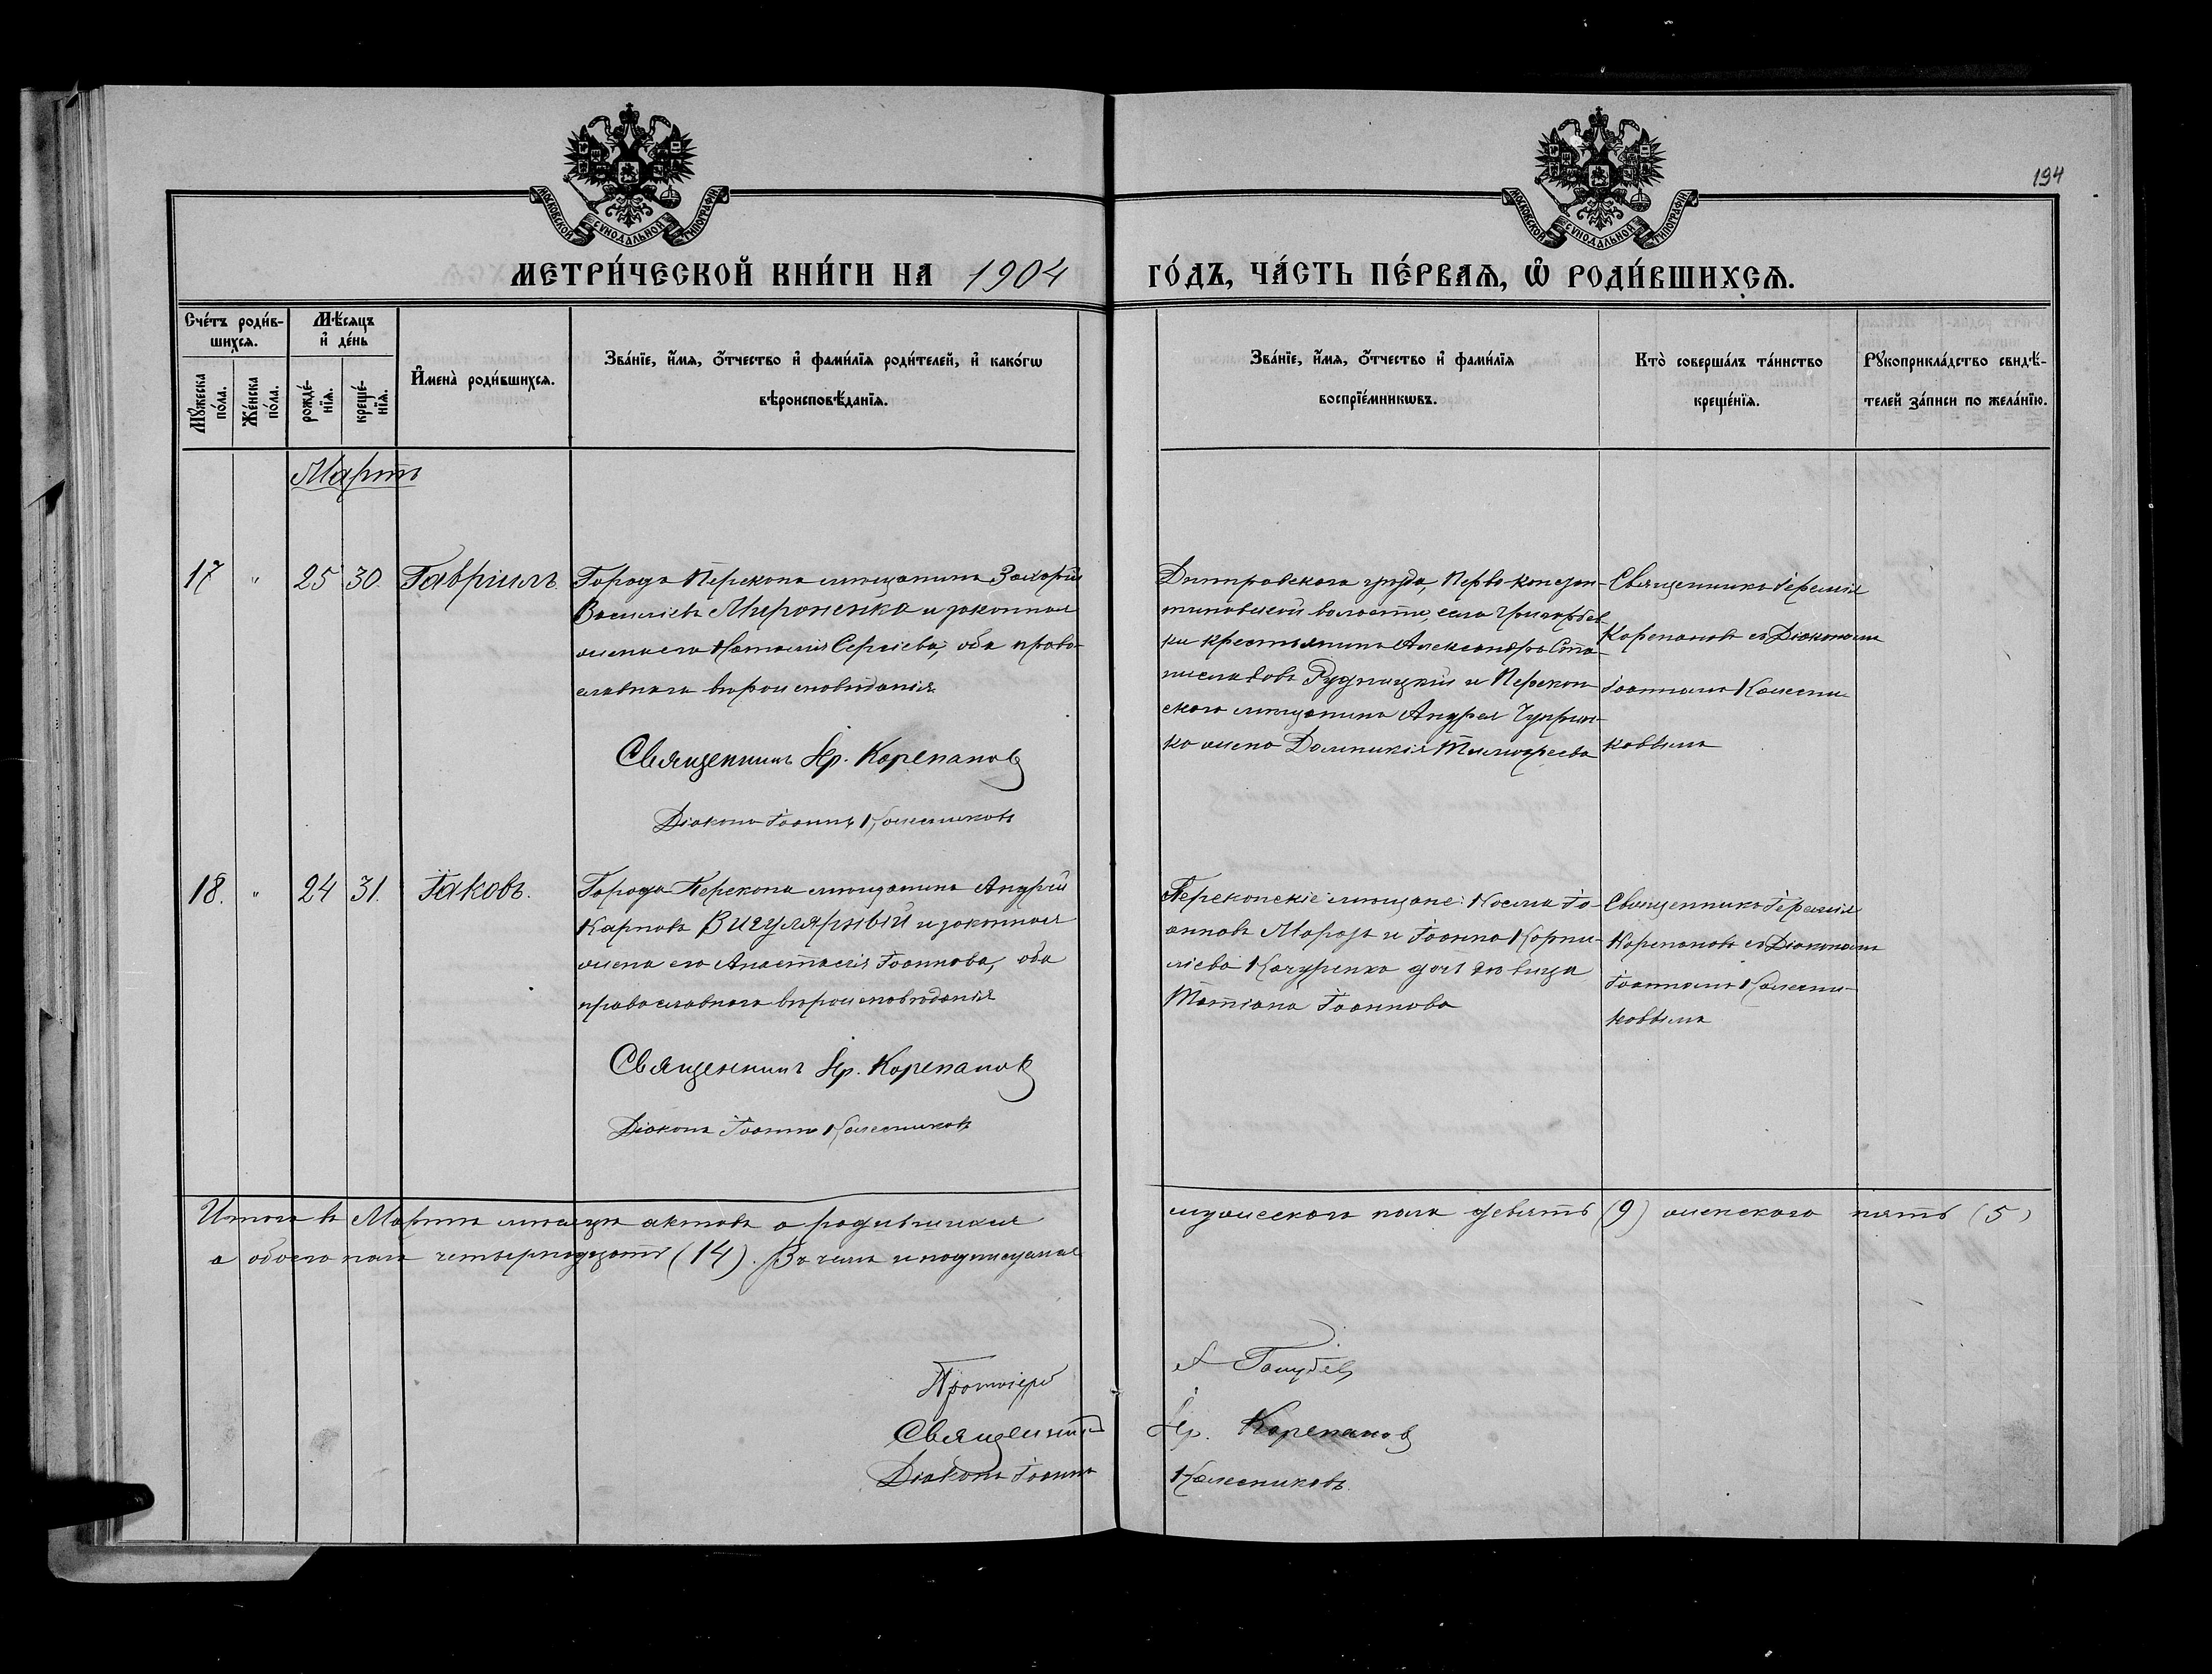 194
МОСКОВСКОЙ СУНОДАЛЬНОЙ ТИПОГРАФІИ
МОСКОВСКОЙ СУНОДАЛЬНОЙ ТИПОГРАФІИ
МЕТРИ́ЧЕСКОЙ КНИ́ГИ НА 1904 ГО́ДЪ, ЧА́СТЬ ПЕ́РВАѦ, Ѿ РОДИ́ВШИХСѦ.
Сче́тъ роди́в-
шихсѧ.
Мꙋ́жеска по́ла.
Же́нска по́ла.
Мѣ́сѧцъ и҆ де́нь
рожде́-нїѧ.
креще́-нїѧ.
И҆мена̀ роди́вшихсѧ.
Зва́нїе, и҆́мѧ, ѻ҆́тчество и҆ фами́лїѧ роди́телей, и҆ како́гѡ
вѣроисповѣ́данїѧ.
Зва́нїе, и҆́мѧ, ѻ҆́тчество и҆ фами́лїѧ
воспрїе́мникѡвъ.
Кто̀ соверша́лъ та́инство
креще́нїѧ.
Рꙋкоприкла́дство свидѣ́-
телей за́писи по жела́нїю.
Мартъ
17 " 25 30. Гавріилъ.
Города Перекопа мѣщанинъ Захарій
Василіевъ Мироненко и законная
жена его Наталія Сергіева, оба право-
славнаго вѣроисповѣданія
Священникъ Іер. Корепанов
Діаконъ Іоаннъ Колесниковъ
Днѣпровскаго уѣзда, Перво-Констан-
тиновской волости, села Григорьев-
ки крестьянинъ Александръ Ста-
ниславовъ Рудницкій и Перекоп-
скаго мѣщанина Андрея Чуприн-
ко жена Домникія Тимоѳеева
Священникъ Іеремія
Корепановъ съ Діакономъ
Іоанномъ Колесни-
ковымъ
18. " 24 31. Іаковъ.
Города Перекопа мѣщанинъ Андрей
Карповъ Вигулярный и законная
жена его Анастасія Іоаннова, оба
православнаго вѣроисповѣданія
Священникъ Іер. Корепанов
Діаконъ Іоаннъ Колесниковъ
Перекопскіе мѣщане: Косма Іо-
анновъ Морозъ и Іоанна Корни-
ліева Качуренко дочь дѣвица
Татіана Іоаннова
Священникъ Іеремія
Корепановъ съ Діакономъ
Іоанномъ Колесни-
ковымъ
Итого въ Мартѣ мѣсяцѣ актовъ о родившихся мужескаго пола девять (9) женскаго пять (5)
а обоего пола четырнадцать (14). Въ чемъ и подписуемся
Протоіерей А Голубев
Священникъ Іер. Корепанов
Діаконъ Іоаннъ Колесниковъ.